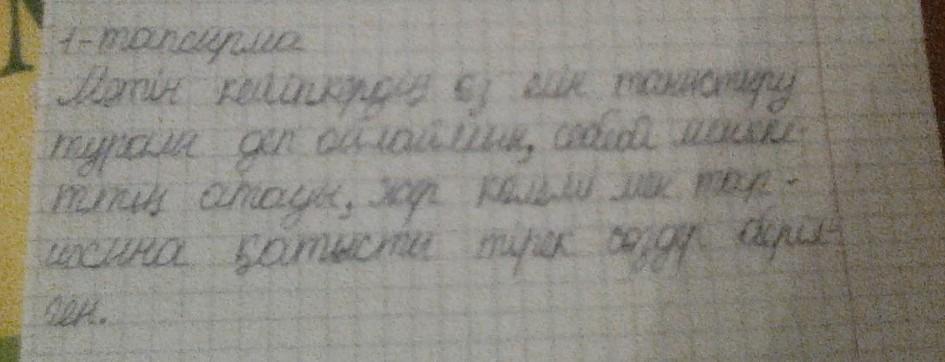 1-тапсырма
Мәтін кейіпкердің өз елін таныстыру
туралы деп ойлаймын, себебі мемлекет-
ттің атауы, жер көлемі мен тар-
ихына қатысты тірек сөздер беріл-
ген.